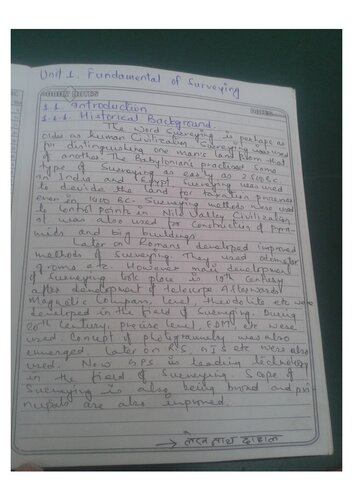 Unit 1. Fundamental of Surveying
1.1. Introduction
1.1.1. Historical Background.
The Word Surveying is perhaps as
older as human Civilization. Surveying was used
for distinguishing one man's land from that
of another. The Babylonians practised some
type of Surveying as early as 2500 BC.
In India and Egypt Surveying was used
to devide the land for taxation purposes
even in 1400 BC. Surveying methods were used
to Control points in Nile Valley Civilization
It was also used for Construction of pyra-
mids and big buildings.
Later on Romans developed improved
methods of Surveying. They used
groma etc. However main development
of Surveying took place in 19th Century
after development of telescope. Afterwards
Magnetic Compass, level, theodolite etc were
developed in the field of Surveying. During
20th Century, precise level, EDM etc were
used. Concept of photogrammetry was also
emerged. Later on R.S, GIS etc were also
used. Now GPS is leading technology
in the field of Surveying. Scope of
Surveying is also being broad and
are also improved.